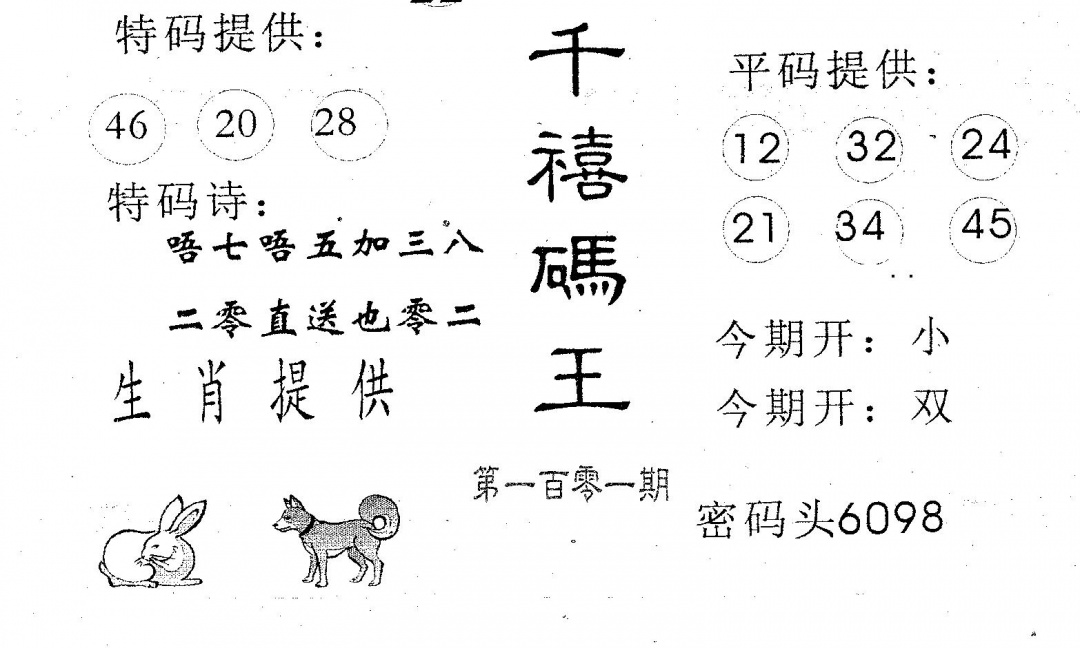 特码提供：
46 20 28
特码诗：
唔七唔五加三八
二零直送也零二
生肖提供
千禧碼王
第一百零一期
平码提供：
12 32 24
21 34 45
今期开：小
今期开：双
密码头6098